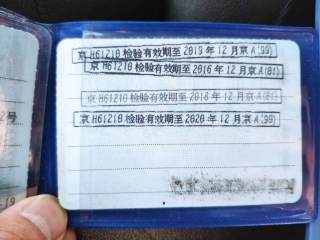 京H61210检验有效期至2019年12月京A(99)
京H61210检验有效期至2016年12月京A(81)
京H61210检验有效期至2018年12月京A(81)
京H61210检验有效期至2020年12月京A(99)
号
19